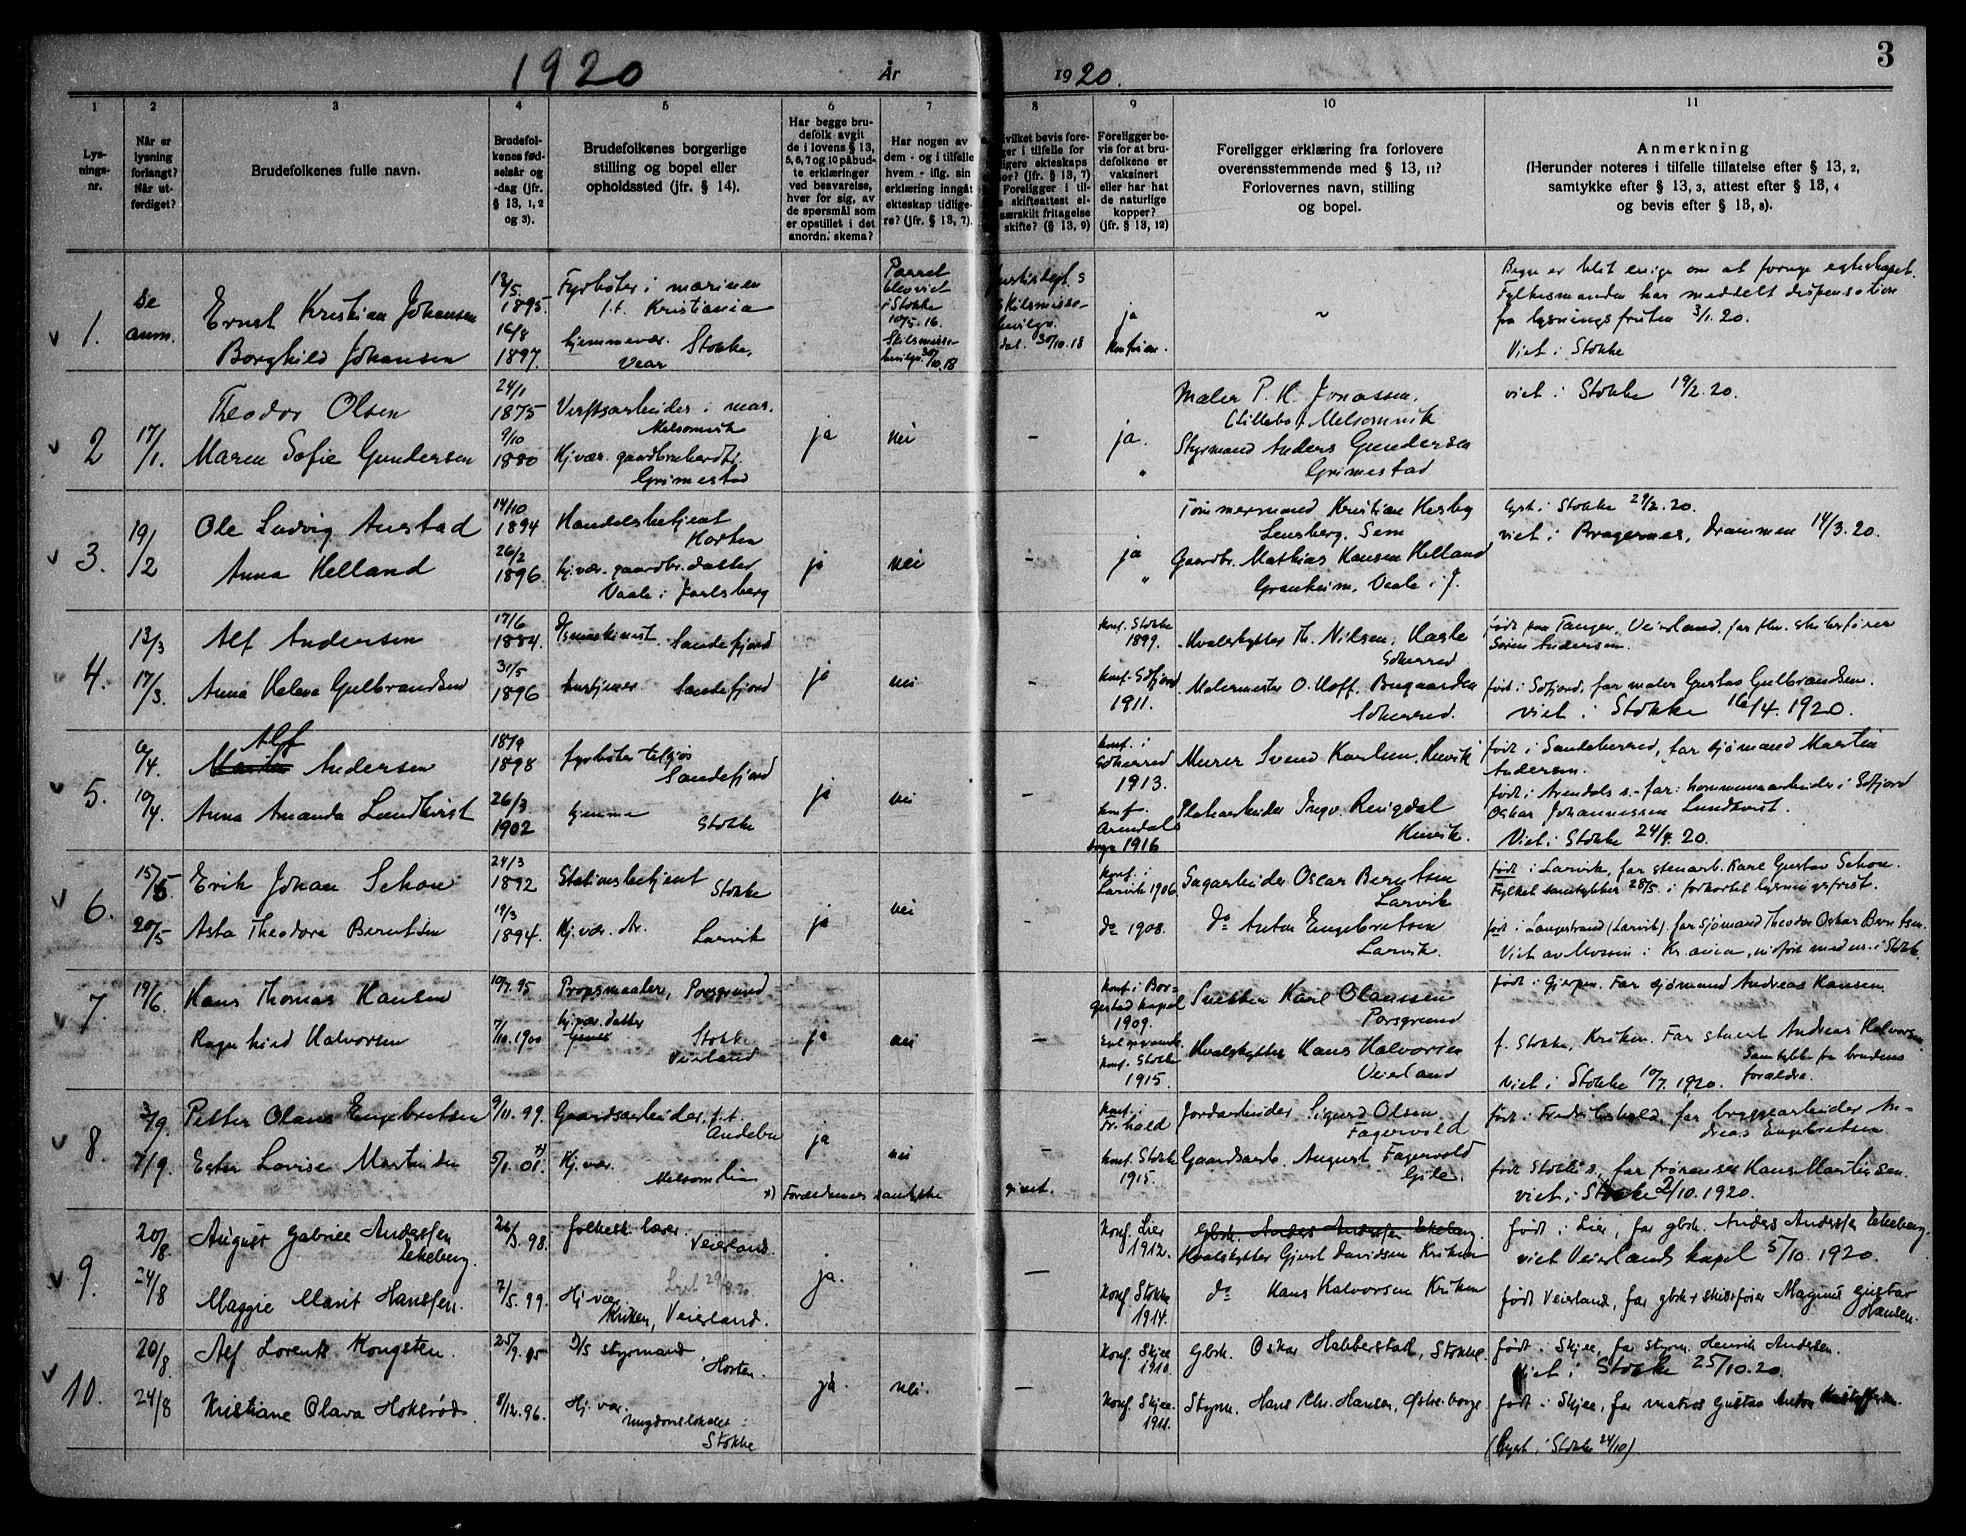 1920 År 1920. 3
1 2 3 4 5 6 7 8 9 10 11
Lys-
nings-
nr.
Når er
lysning
forlangt?
Når ut-
ferdiget?
Brudefolkenes fulle navn.
Brudefol-
kenes fød-
selsår og
-dag (jfr.
§ 13, 1, 2
og 3).
Brudefolkenes borgerlige
stilling og bopel eller
opholdssted (jfr. § 14).
Har begge bru-
defolk avgit
de i lovens § 13,
5, 6, 7 og 10 påbud-
te erklæringer
ved besvarelse,
hver for sig, av
de spørsmål som
er opstillet i det
anordn. skema?
Har nogen av
dem - og i tilfelle
hvem - iflg. sin
erklæring inngått
ekteskap tidlige-
re? (jfr. § 13, 7).
vilket bevis fore-
ger i tilfelle for
ligere ekteskaps
or? (jfr. § 13, 7)
Foreligger i til-
skifteattest el-
særskilt fritagelse
skifte? (§ 13, 9)
Foreligger be-
vis for at bru-
defolkene er
vaksinert
eller har hat
de naturlige
kopper?
(jfr. § 13, 12)
Foreligger erklæring fra forlovere
overensstemmende med § 13, 11?
Forlovernes navn, stilling
og bopel.
Anmerkning
(Herunder noteres i tilfelle tillatelse efter § 13, 2,
samtykke efter § 13, 3, attest efter § 13, 4
og bevis efter § 13, 8).
1.
Se
anm.
Ernst Kristian Johansen
Borghild Johansen
13/5.
1895.
16/8
1897.
Fyrbøter i marinen
f.t. Kristiania
hjemmevær. Stokke,
Vear
Parret
blev viet
i Stokke
10/5-16.
Skilsmisse-
bevilgn. 30/10.18
Skilsmisse-
bevilgn.
dat. 30/10.18
ja
Begge er blit enige om at fornye egteskapet.
Fylkesmanden har meddelt dispensation
fra lysningsfristen 3/1.20.
Viet i Stokke
2
17/1.
Theodor Olsen
Maren Sofie Gundersen
24/1
1875
9/10
1880
Verftsarbeider i mar.
Melsomvik
Hj.vær. gaardbruker
Grimestad
ja
nei
-
ja.
"
Maler P. H. Jonassen,
(Lillebo) Melsomvik
Styrmand Anders Gundersen
Grimestad
viet i Stokke 19/2.20.
3.
19/2
Ole Ludvig Austad
Anna Helland
14/10
1894
26/2
1896
Handelsbetjent
Horten
hj.vær. gaardbr.datter
Vaale i Jarlsberg
ja
nei
-
ja
"
Tømmermand Kristian Hesby
Lensberg, Sem
Gaardbr. Mathias Hansen Helland
Graaheim, Vaale i J.
Lyst i Stokke 29/2.20.
viet i Bragernes, Drammen 14/3.20.
4.
13/3
17/3.
Alf Andersen
Anna Helene Gulbrandsen
17/6
1884.
31/5
1896
D/S maskinist. Sandefjord
hustjener Sandefjord
ja
nei
-
Konf. Stokke
1899.
Konf. Sdfjord
1911.
Hvalskytter Th. Nilsen, Hasle
Sdherred
Malermester O. Hoff. Bugaarden
Sdherred.
født paa Tangen, Veierland, far fhv. skibsfører
Søren Andersen.
født i Sdfjord, far maler Gustav Gulbrandsen.
viet i Stokke 16/4.1920.
5.
6/4.
10/4.
Alf
Andersen
Anna Amanda Lundkvist
18/9
1898
26/3
1902
fyrbøter tilsjøs
Sandefjord
hjemme
Stokke
ja
nei
-
Konf. i
Sdherred
1913.
Konf.
Arendals
sogn 1916
Murer Svend Karlsen, Hunvik
Platearbeider Ingv. Ringdal
Hunvik.
født i Sandeherred, far sjømand Martin
Andersen.
født i Arendals s. - far: kommunearbeider i Sdfjord
Oskar Johannessen Lundkvist.
Viet i Stokke 24/4.20.
6.
15/5
20/5
Erik Johan Schou
Asta Theodora Berntsen
24/3
1892
19/3
1894.
Stationsbetjent
Stokke
Hj.vær. dr.
Larvik
ja
nei
-
Konf. i
Larvik 1906
do 1908.
Sagarbeider Oscar Berntsen
Larvik
do Anton Engebretsen
Larvik.
født i Larvik, far stenarb. Karl Gustav Schou.
Fylket samtykker 28/5. i forkortet lysningsfrist.
født i Langestrand (Larvik). far Sjømand Theodor Oskar Berntsen.
Viet av Mossin i Kr.ania, indført med nr. i Stokke.
7.
19/6
Hans Thomas Hansen
Ragnhild Halvorsen
10/7.95
7/10.1900
Propsmaaler, Porsgrund
hj.vær. datter
Stokke
Veierland
ja
nei
-
Konf. i Bor-
gestad kapel
1909.
Konf. Stokke
1915.
Snekker Karl Olaussen
Porsgrund
Hvalskytter Hans Halvorsen
Veierland
født i Gjerpen. Far sjømand Andreas Hansen.
f. Stokke, Kriken. Far stuert Andreas Halvorsen.
Samtykke fra brudens
forældre.
viet i Stokke 10/7.1920.
8.
3/9.
7/9.
Petter Olaus Engebretsen
Ester Lovise Martinsen
9/11.99.
5/1.01. x)
Gaardsarbeider, f.t.
Andebu
Hj.vær.
Melsomlien
x) Forældrenes samtykke givet.
ja
nei
-
Konf. i
Fr.hald
Konf. Stokke
1915.
Jordarbeider Sigurd Olsen
Fagervold
Gaardsarb. August Fagervold
Gile.
født i Fredrikshald, far bryggearbeider An-
dreas Engebretsen
født Stokke s., far frønenser Hans Martinsen.
viet i Stokke 2/10.1920.
9.
20/8.
24/8
August Gabriel Anderssen
Ekeberg.
Maggie Marit Hanssen.
26/3.98.
7/5.99.
folkesk. lærer
Veierland.
Lyst 29/8.20.
Hj.vær
Kriken, Veierland.
ja.
-
Konf. Lier
1912.
Konf. Stokke
1914.
Gbrk. Anders Anderssen Ekeberg.
Hvalskytter Gjert Davidsen Kriken
do Hans Halvorsen Kriken
født i Lier, far gbrk. Anders Anderssen Ekeberg.
viet Veierlands kapel 5/10.1920.
født Veierland, far gbrk & skibsfører Magnus Gustav
Hansen.
10.
20/8.
24/8
Alf Lorents Kongsten.
Kristiane Olava Hoksrød
25/9.95
8/12.96.
D/S styrmand
Horten.
Hj.vær.
Ungdomslokalet i
Stokke
ja.
nei.
-
Konf. Skjee
1910.
Konf. Skjee
1911.
Gbrk. Oskar Habberstad, Stokke.
Styrm. Hans Chr. Hansen,
født i Skjee, far styrm. Henrik Andersen.
Viet i Stokke 25/10.20.
født i Skjee, far matros Gustav Anton Kristoffersen.
(Lyst i Stokke 24/10)